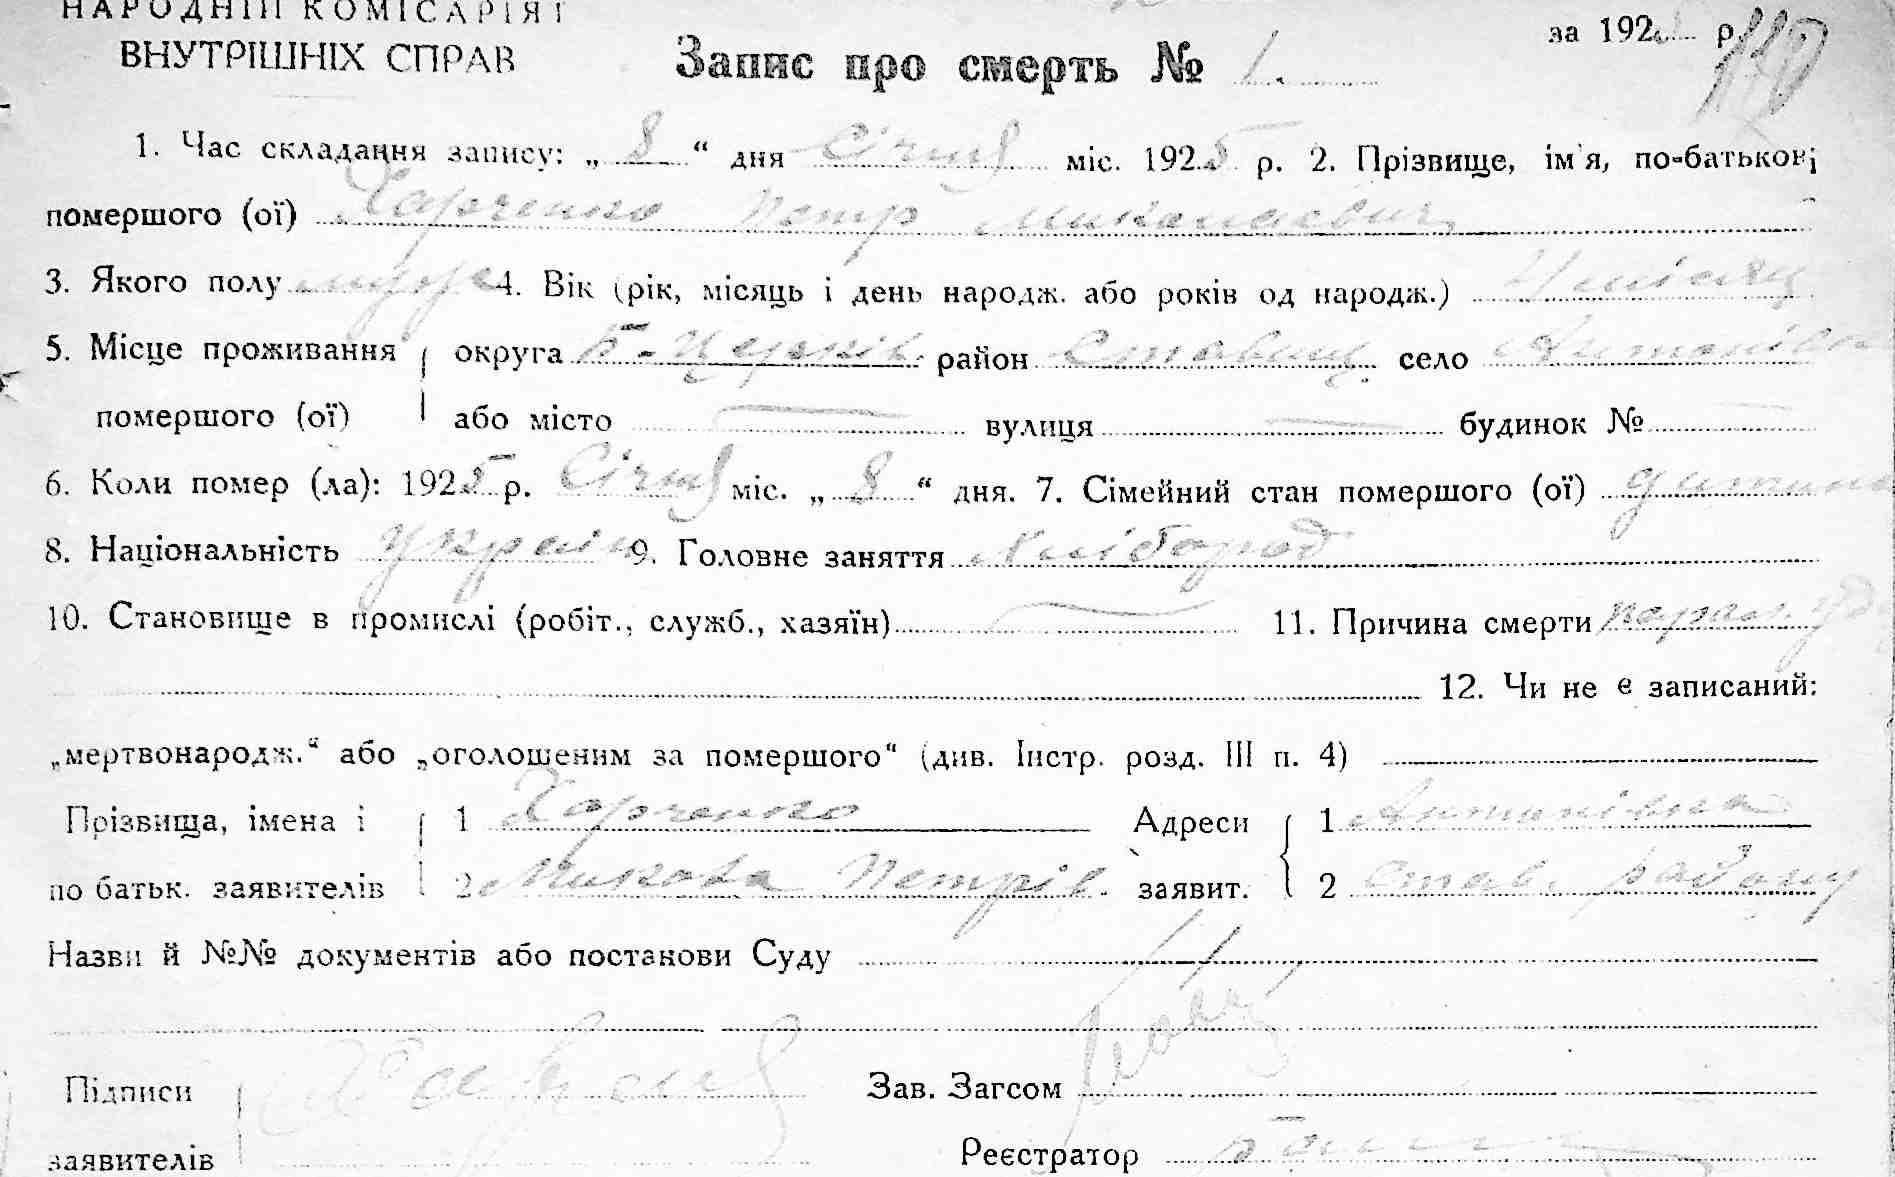 НАРОДНІЙ КОМІСАРІЯТ
ВНУТРІШНІХ СПРАВ
за 192 р. 110
Запис про смерть № 1.
1. Час складання запису: „ 8 “ дня Січня міс. 1925 р. 2. Прізвище, ім'я, по-батькові
помершого (ої) Харченко Петр Миколаевич
3. Якого полу муж 4. Вік (рік, місяць і день народж. або років од народж.) місяц
5. Місце проживання округа Б-Церків. район Ставищ. село Антонівка
помершого (ої) або місто — вулиця — будинок № —
6. Коли помер (ла): 1925 р. Січня міс. „ 8 “ дня. 7. Сімейний стан помершого (ої) дитина
8. Національність україн 9. Головне заняття Хлібороб
10. Становище в промислі (робіт., служб., хазяїн) — 11. Причина смерти
12. Чи не є записаний:
„мертвонародж.“ або „оголошеним за помершого“ (див. Інстр. розд. III п. 4)
Прізвища, імена і 1 Харченко Адреси 1 Антонівка
по батьк. заявителів 2 Микола Петрів. заявит. 2 Став. району
Назви й №№ документів або постанови Суду
Підписи Зав. Загсом
заявителів Реєстратор